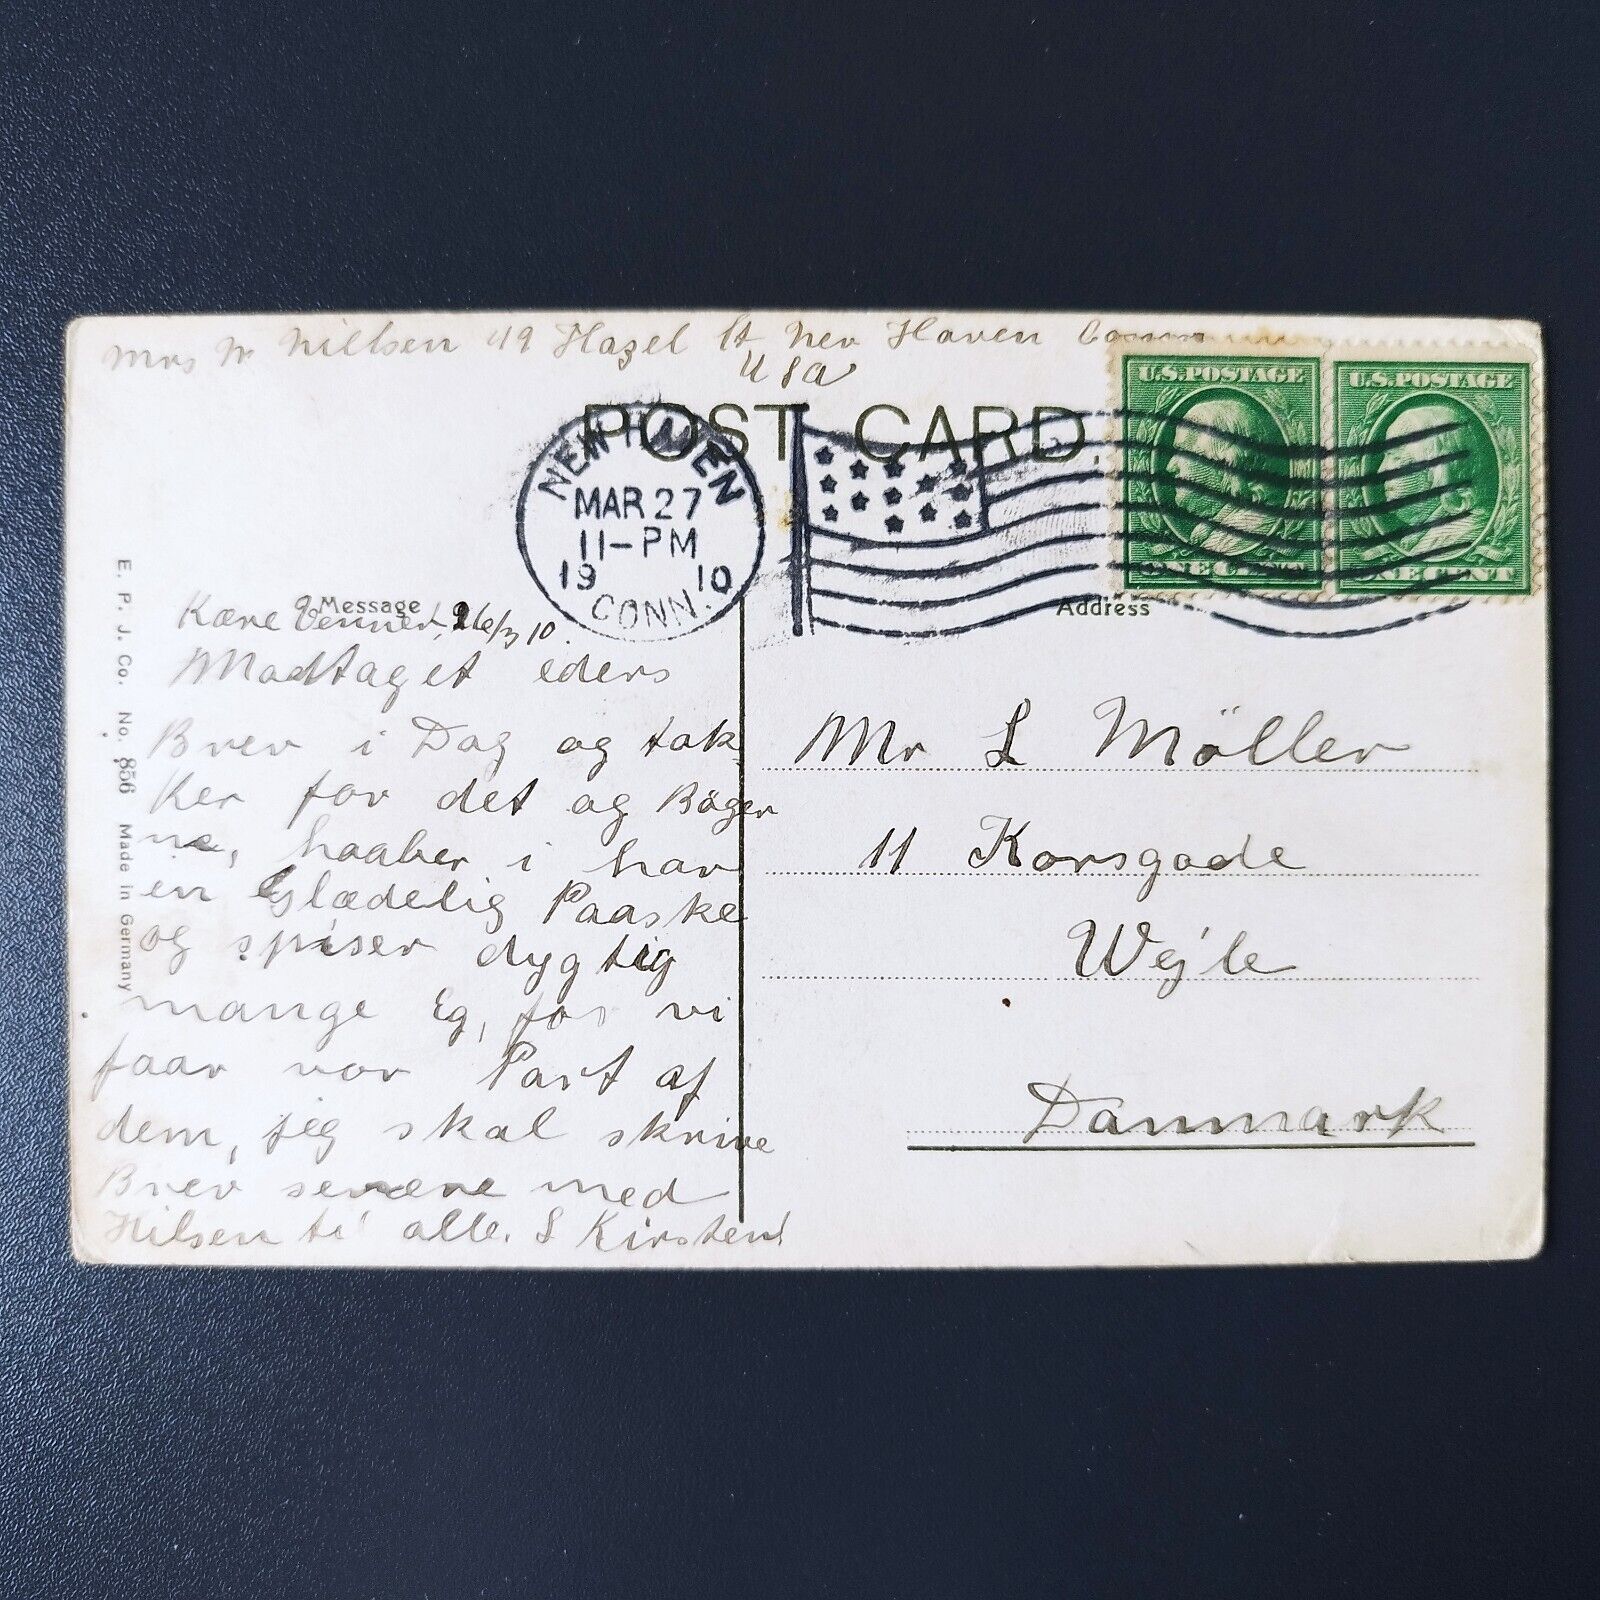 Mrs N Nielsen 49 Hazel St New Haven Conn
USA
POST CARD.
NEW HAVEN
MAR 27
11-PM
1910
CONN.
U.S. POSTAGE
ONE CENT
U.S. POSTAGE
ONE CENT
Message
Address
Kære Venner, 26/3 10.
Modtaget eders
Brev i Dag og tak
ker for det og Bøger
ne, haaber i har
en Glædelig Paaske
og spiser dygtig
mange Eg, for vi
faar vor Part af
dem, jeg skal skrive
Brev senere med
Hilsen til alle. S Kirsten
Mr L Möller
11 Korsgade
Wejle
Danmark
E. P. J. Co. No. 856 Made in Germany